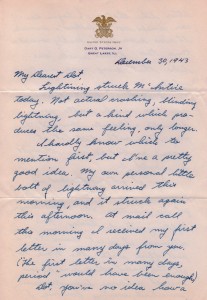 UNITED STATES NAVY
GARY G. PETERSON, JR
GREAT LAKES, ILL.
December 30, 1943
My Dearest Dot,
Lightning struck McIntire
today. Not actual crashing, blinding
lightning, but a kind which pro-
duces the same feeling, only longer.
I hardly know which to
mention first, but I've a pretty
good idea. My own personal little
bolt of lightning arrived this
morning, and it struck again
this afternoon. At mail call
this morning I received my first
letter in many days from you.
(The first letter in many days,
period would have been enough)
Dot, you've no idea how a